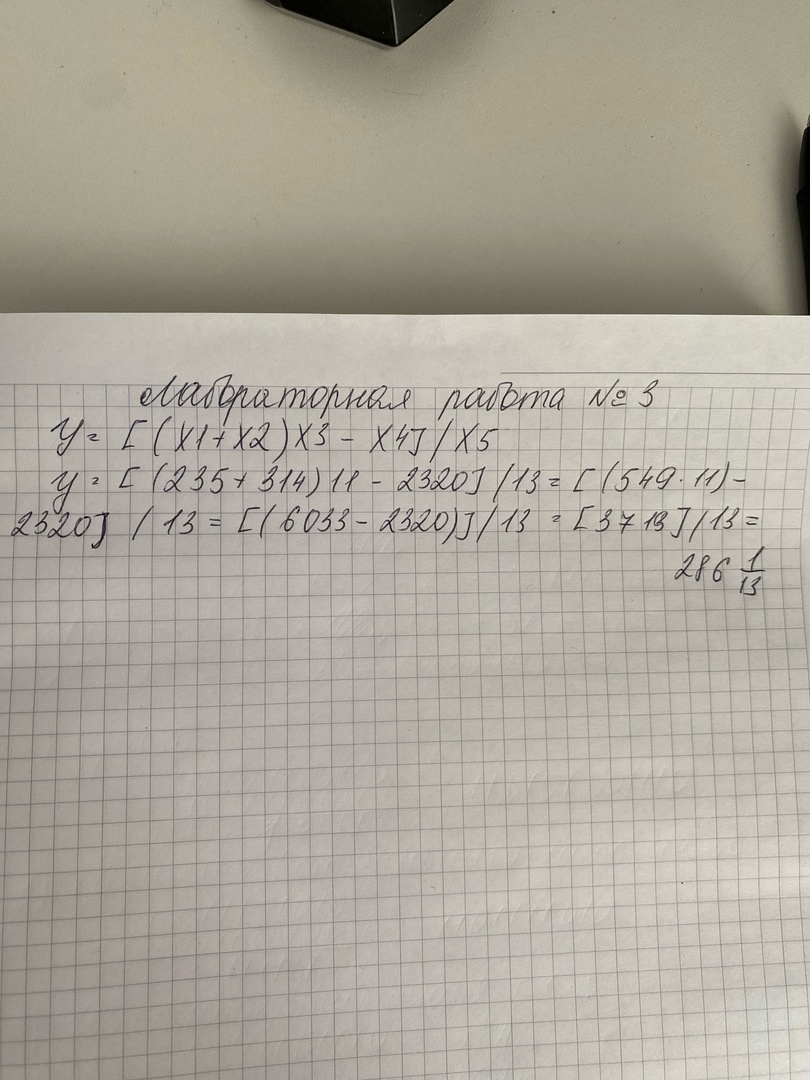 Лабораторная работа № 3
У = [(X1+X2)X3 - X4] / X5
у = [(235+314)11 - 2320] /13 = [(549·11)-
2320] / 13 = [(6033-2320)] /13 = [3713] /13 =
286 1/13